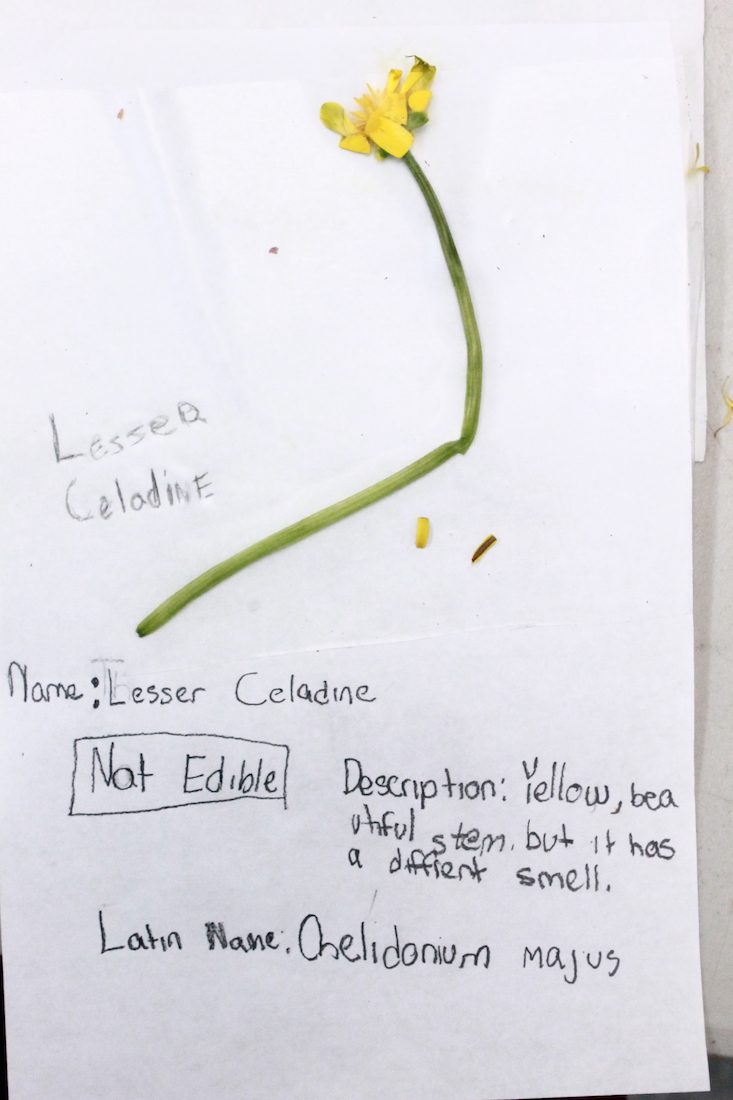 Lesser
Celadine
Name: Lesser Celadine
Not Edible
Description: Yellow, bea
utiful stem. but it has
a diffrent smell.
Latin Name: Chelidonium majus